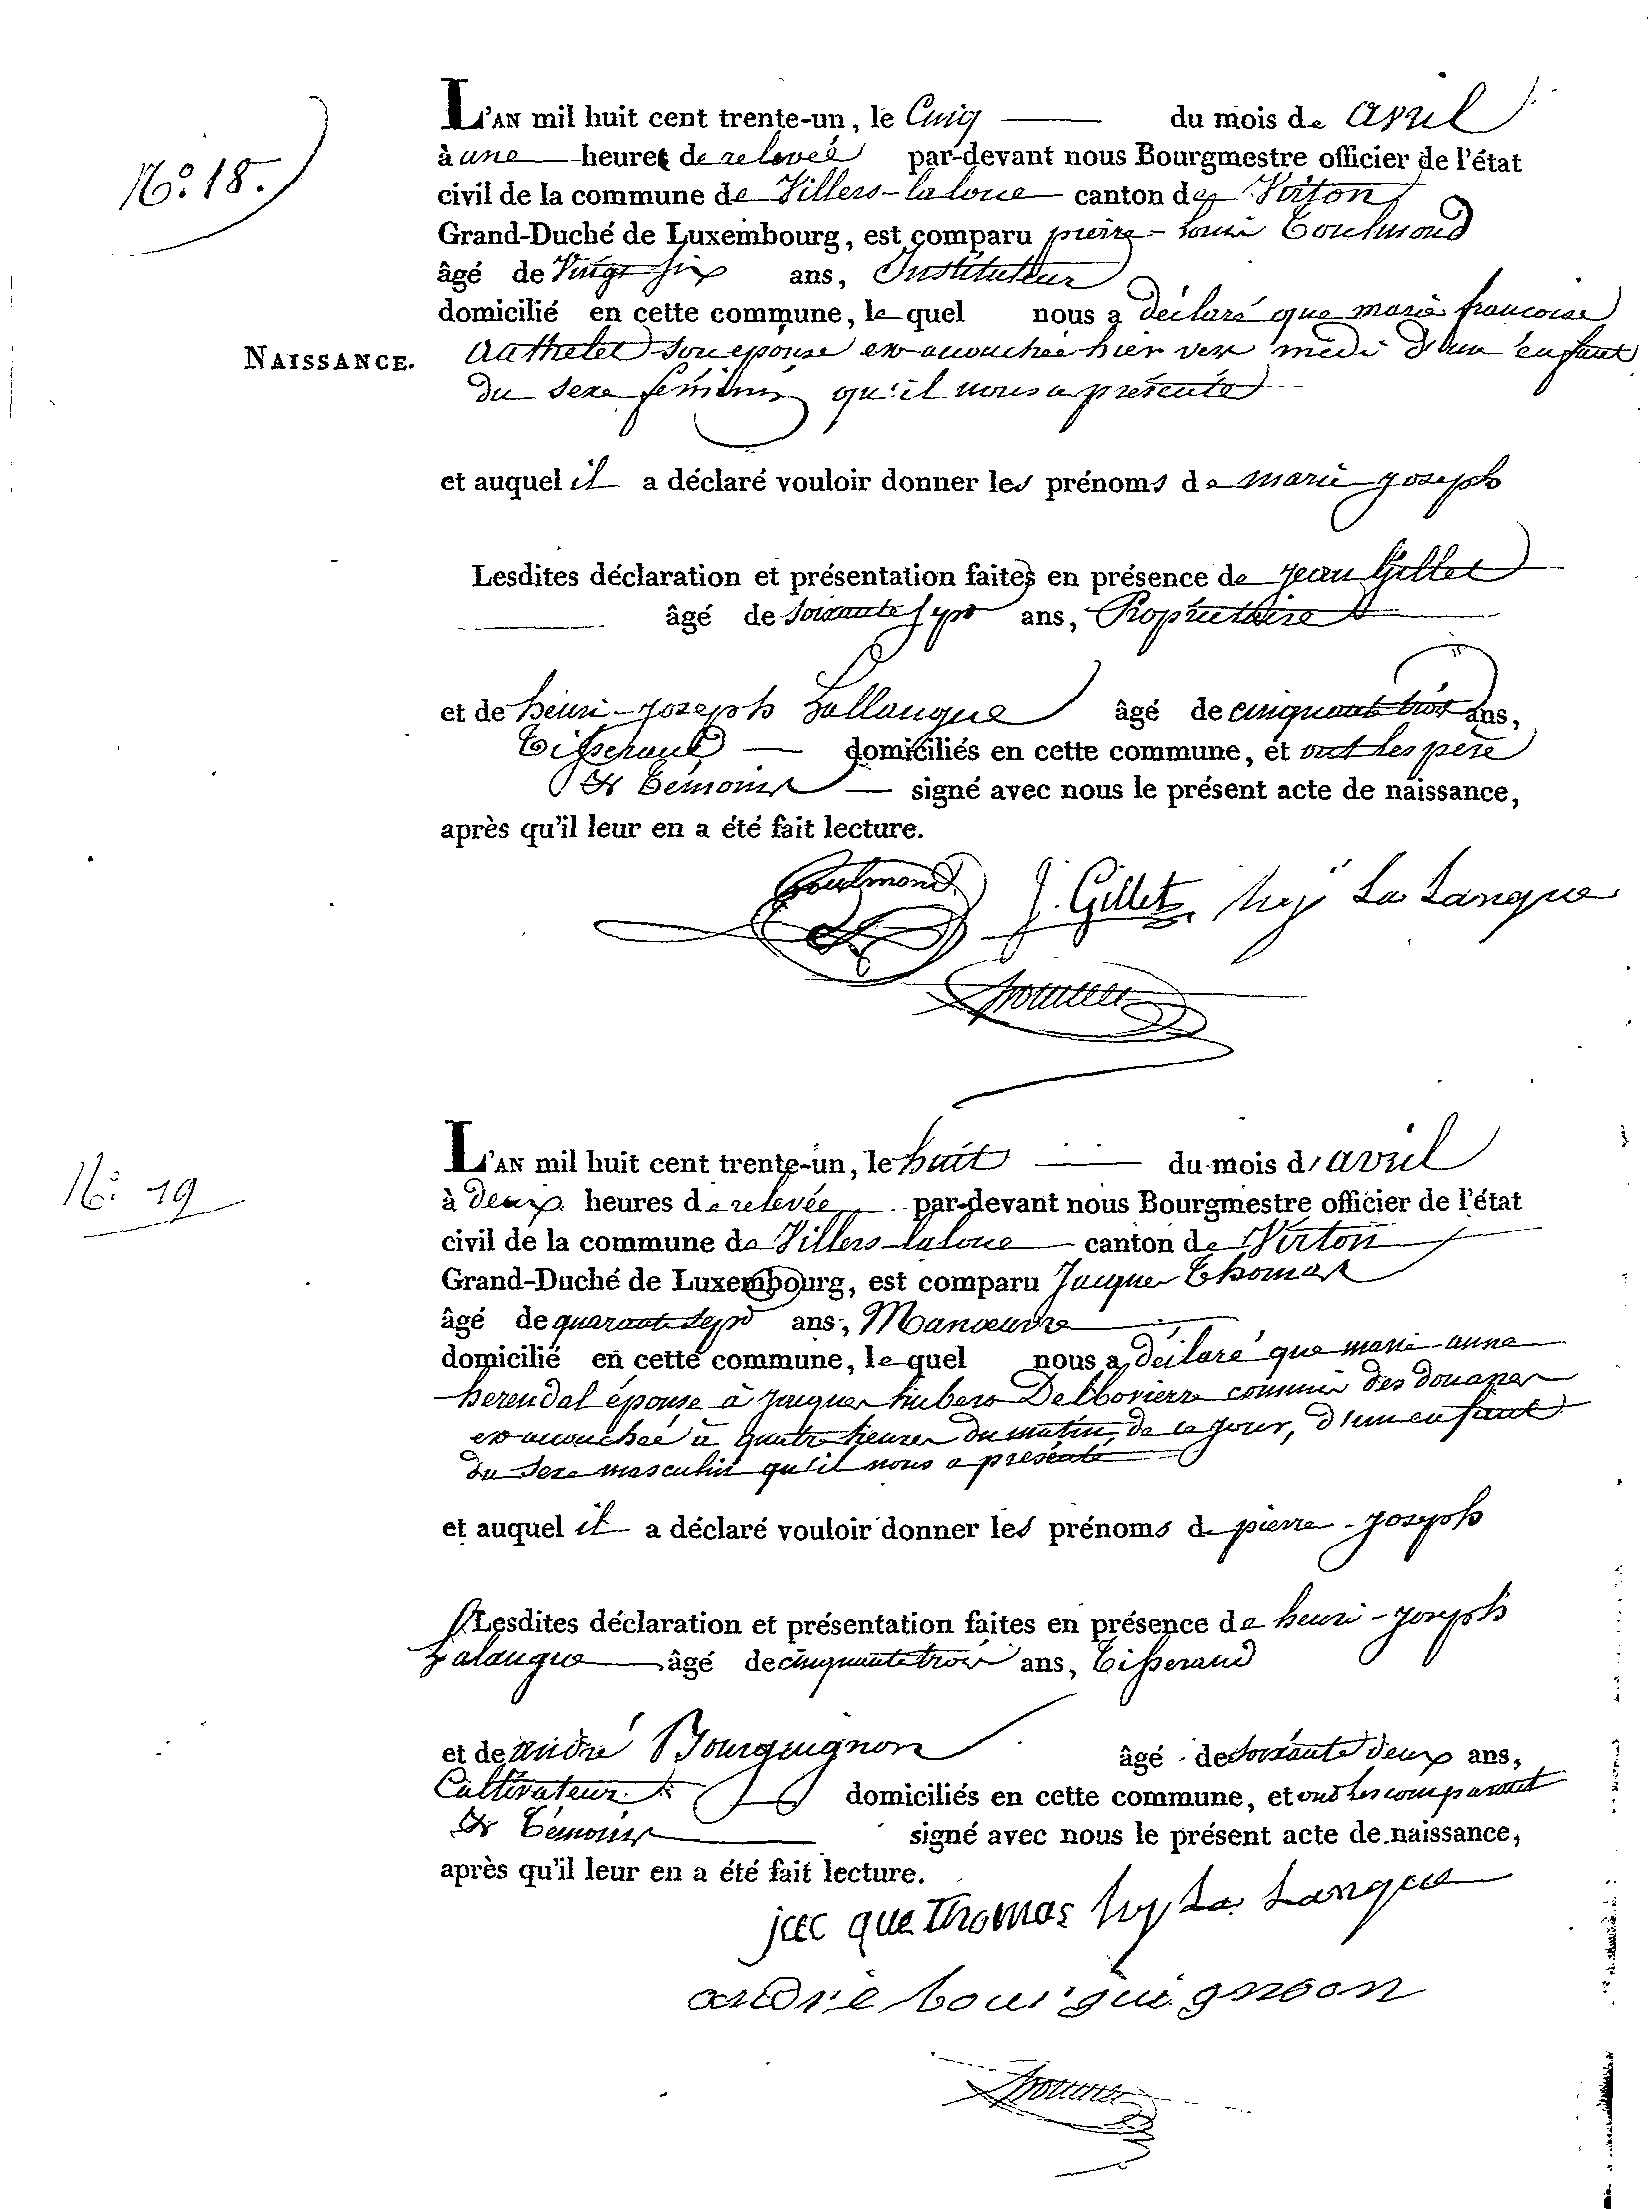 No. 18.
L'AN mil huit cent trente-un, le Cinq du mois de avril
à une heures de relevée par-devant nous Bourgmestre officier de l'état
civil de la commune de Villers-la loue canton de Virton
Grand-Duché de Luxembourg, est comparu pierre-louis Toulmond
âgé de Vingt six ans, Instituteur
domicilié en cette commune, lequel nous a déclaré que marie francoise
NAISSANCE.
son epouse est accouchée hier vers midi d'un enfant
du sexe féminin qu'il nous a présenté
et auquel il a déclaré vouloir donner les prénoms de marie joseph
Lesdites déclaration et présentation faites en présence de jean Gillet
âgé de soixante sept ans, Propriétaire
et de henri-joseph Lallangue âgé de cinquante trois ans,
Tisserand domiciliés en cette commune, et ont les père
et témoins signé avec nous le présent acte de naissance,
après qu'il leur en a été fait lecture.
Toulmond J. Gillet hrj La Langue
No. 19
L'AN mil huit cent trente-un, le huit du mois d'avril
à deux heures de relevée par-devant nous Bourgmestre officier de l'état
civil de la commune de Villers-la loue canton de Virton
Grand-Duché de Luxembourg, est comparu Jacques Thomas
âgé de quarante sept ans, Manœuvre
domicilié en cette commune, lequel nous a déclaré que marie-anne
herendal épouse à jacques hubert commis des douanes
est accouchée à quatre heures du matin, de ce jour, d'un enfant
du sexe masculin qu'il nous a présenté
et auquel il a déclaré vouloir donner les prénoms de pierre-joseph
Lesdites déclaration et présentation faites en présence de henri-joseph
Lalangue âgé de cinquante trois ans, Tisserand
et de andré Bourguignon âgé de soixante deux ans,
Cultivateur domiciliés en cette commune, et ont les comparant
et témoins signé avec nous le présent acte de naissance,
après qu'il leur en a été fait lecture.
jac que Thomas hrj La Langue
andré bourguignon